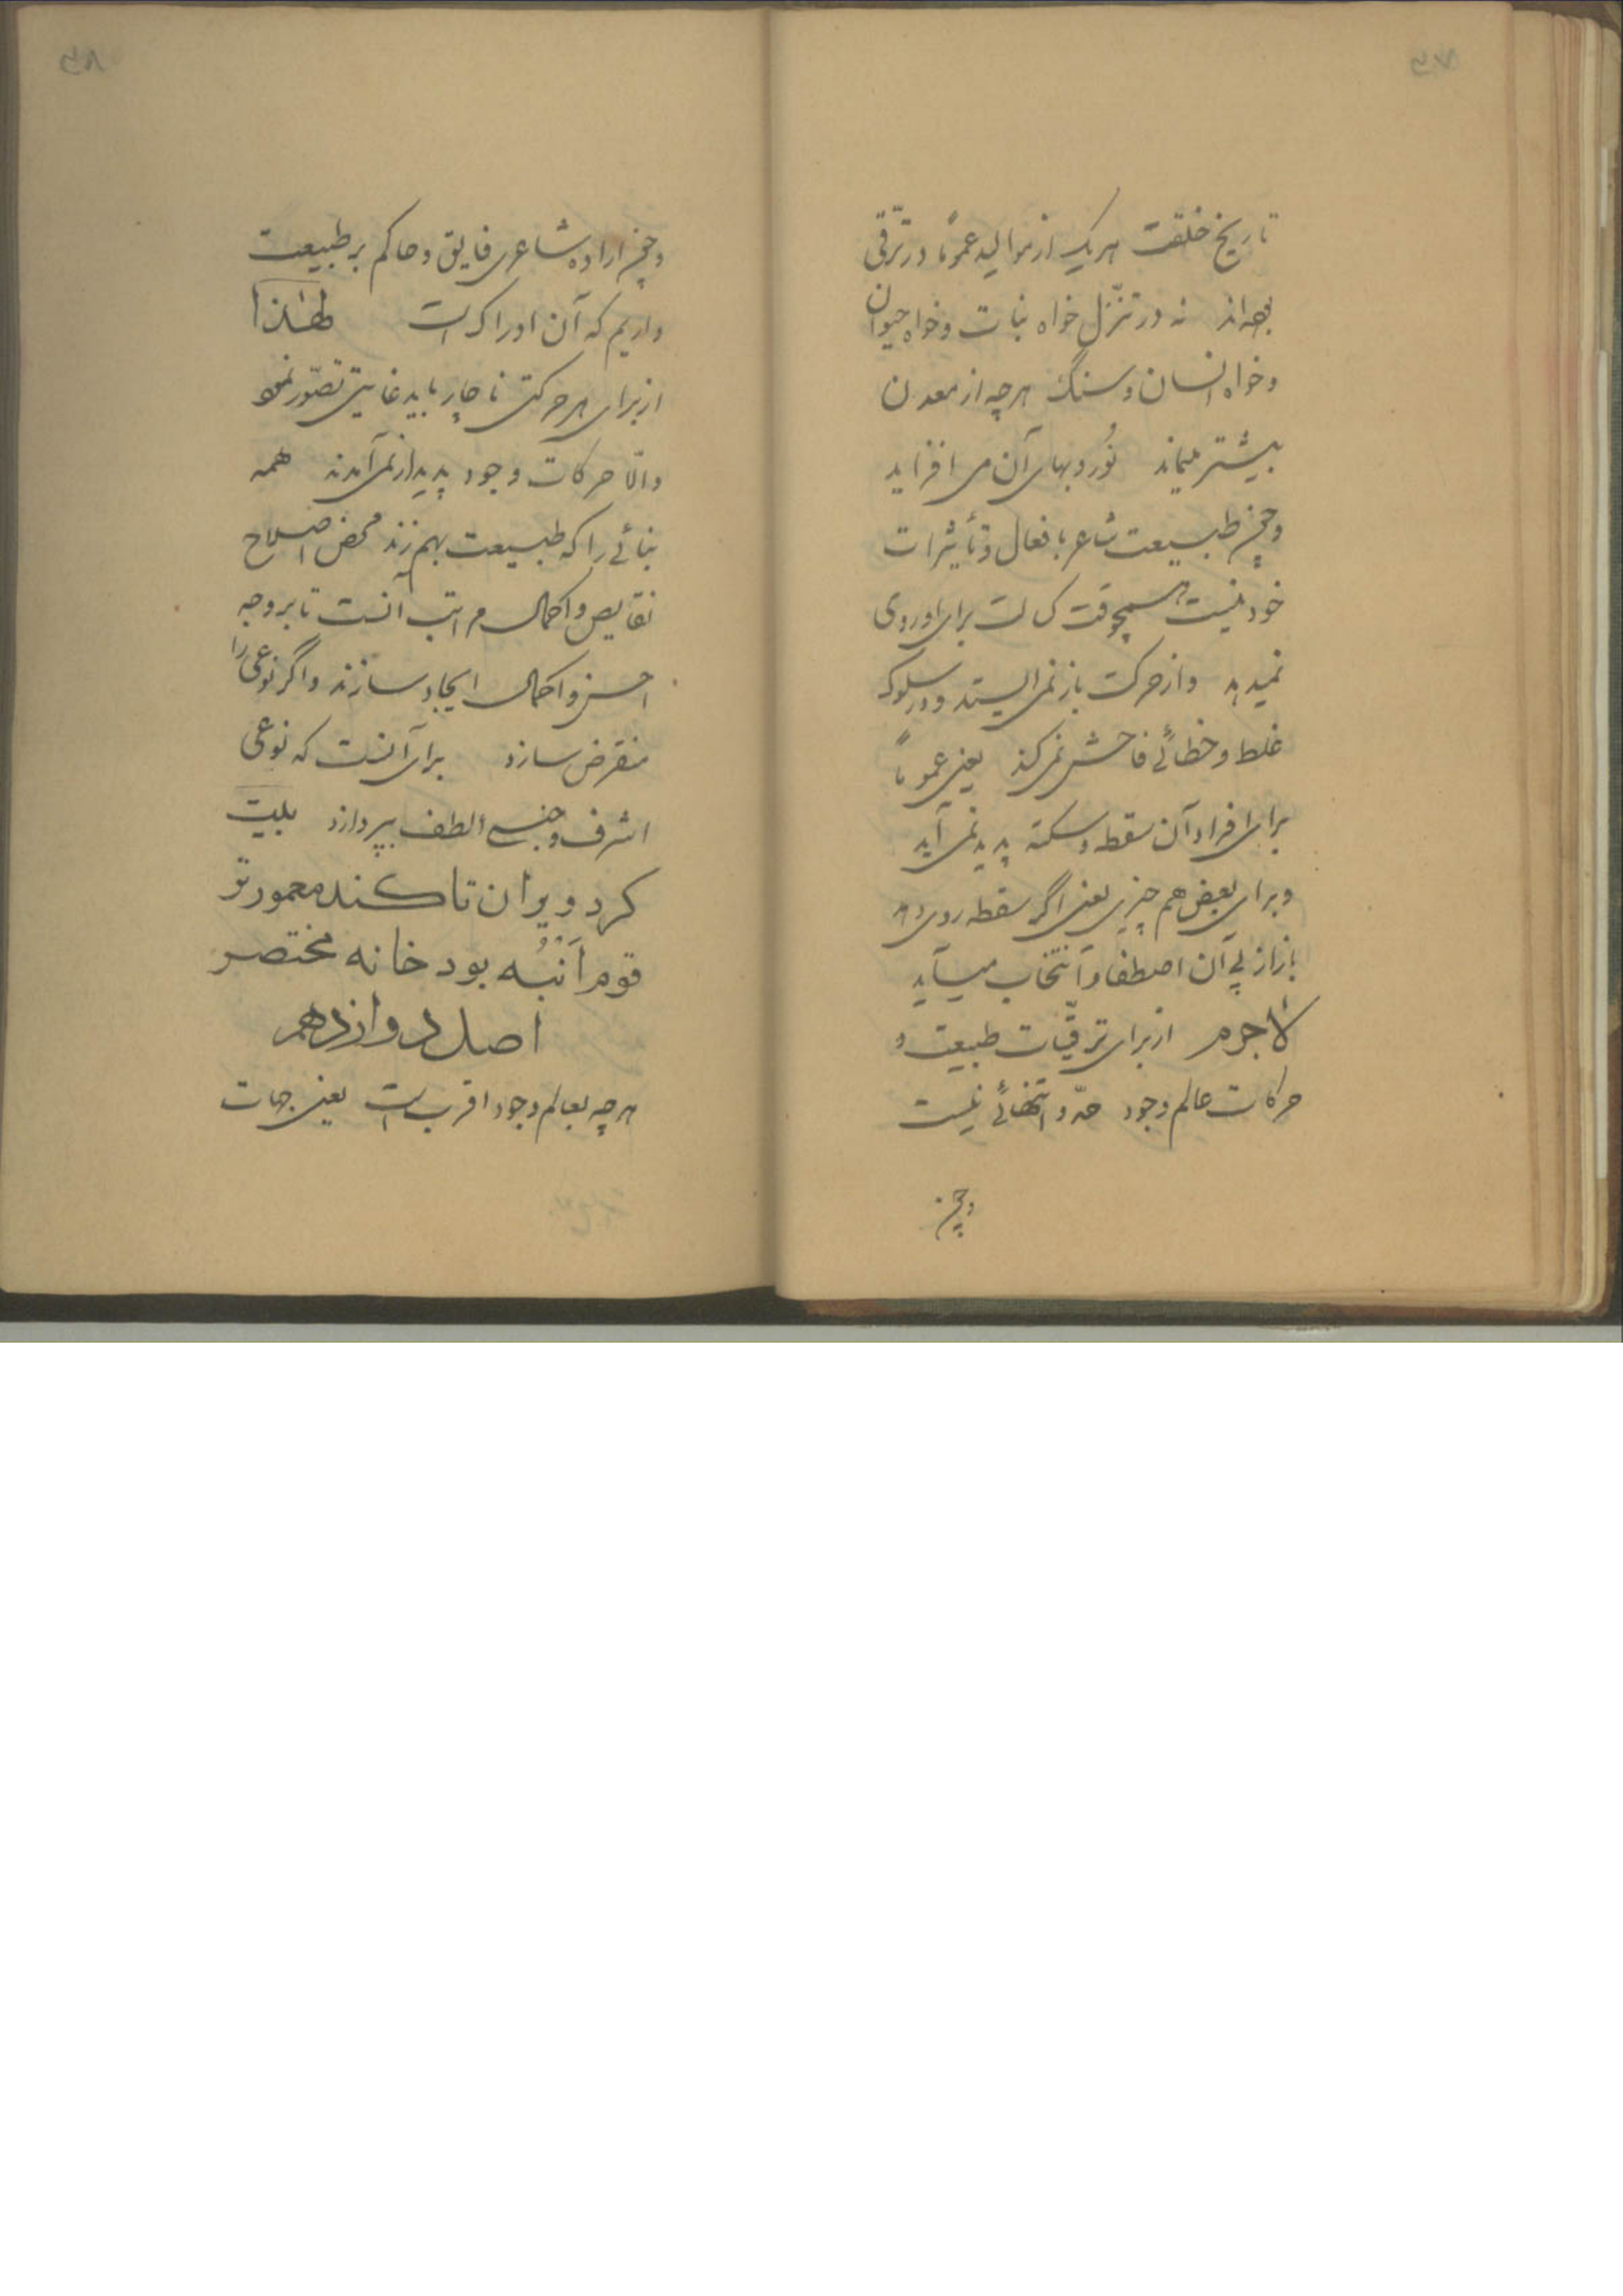 ۵۷
تاریخ خلقت هر یک از موالید عموماً در ترقّی
بوده‌اند نه در تنزّل خواه نبات و خواه حیوان
و خواه انسان و سنگ هر چه از معدن
بیشتر میماند نُور و بهای آن می افزاید
و چون طبیعت شاعر بافعال و تأثیرات
خود نیست هیچوقت کسالت برای او روی
نمیدهد و از حرکت باز نمی ایستد و در سلوک
غلط و خطائی فاحش نمی کند یعنی عموماً
برای افراد آن سقطه و سکته پدید نمی آید
و برای بعض هم چیزی یعنی اگر سقطه روی دهد
باز از پی آن اصطفا و انتخاب میآید
لاجرم از برای ترقّیات طبیعت و
حرکات عالم وجود حدّ و انتهائی نیست
و چون
۵۸
و چون اراده شاعری فایق و حاکم بر طبیعت
داریم که آن ادراک است لهذا
از برای هر حرکتی ناچار باید غایتی تصّور نمود
والّا حرکات وجود پدیدار نمی آمدند همه
بنائی را که طبیعت بهم زند محض اصلاح
نقایص و اکمال مراتب آنست تا بر وجه
احسن و اکمال ایجاد سازند و اگر نوعی را
منقرض سازد برای آنست که نوعی
اشرف و جنسی الطف بپردازد بلیت
کرد ویران تا کند معمورتر
قوم اَنْبُه بود خانه مختصر
اصل دوازدهم
هر چه بعالم وجود اقرب است یعنی جهات